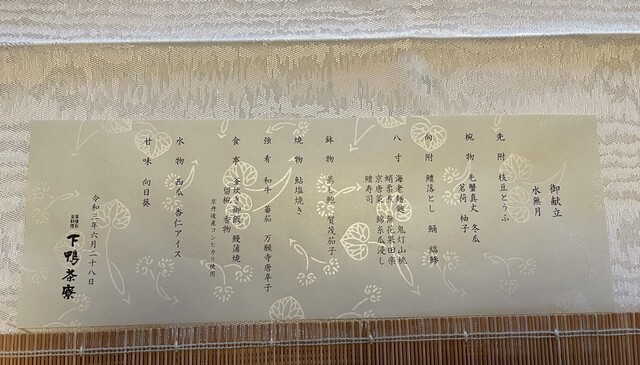 御献立
水無月
先附 枝豆とうふ
椀物 毛蟹真丈 冬瓜
茗荷 柚子
向附 鱧落とし 鮪 縞鯵
八寸 海老麺麹 鬼灯山桃
蛸柔煮 無花果田楽
京唐菜 錦糸瓜浸し
鱧寿司
鉢物 蒸し鮑 賀茂茄子
焼物 鮎塩焼き
強肴 和牛 蕃茄 万願寺唐辛子
食事 炊き御飯 鰻蒲焼
留椀 香物
京丹後産コシヒカリ使用
水物 西瓜 杏仁アイス
甘味 向日葵
令和三年六月二十八日
下鴨茶寮